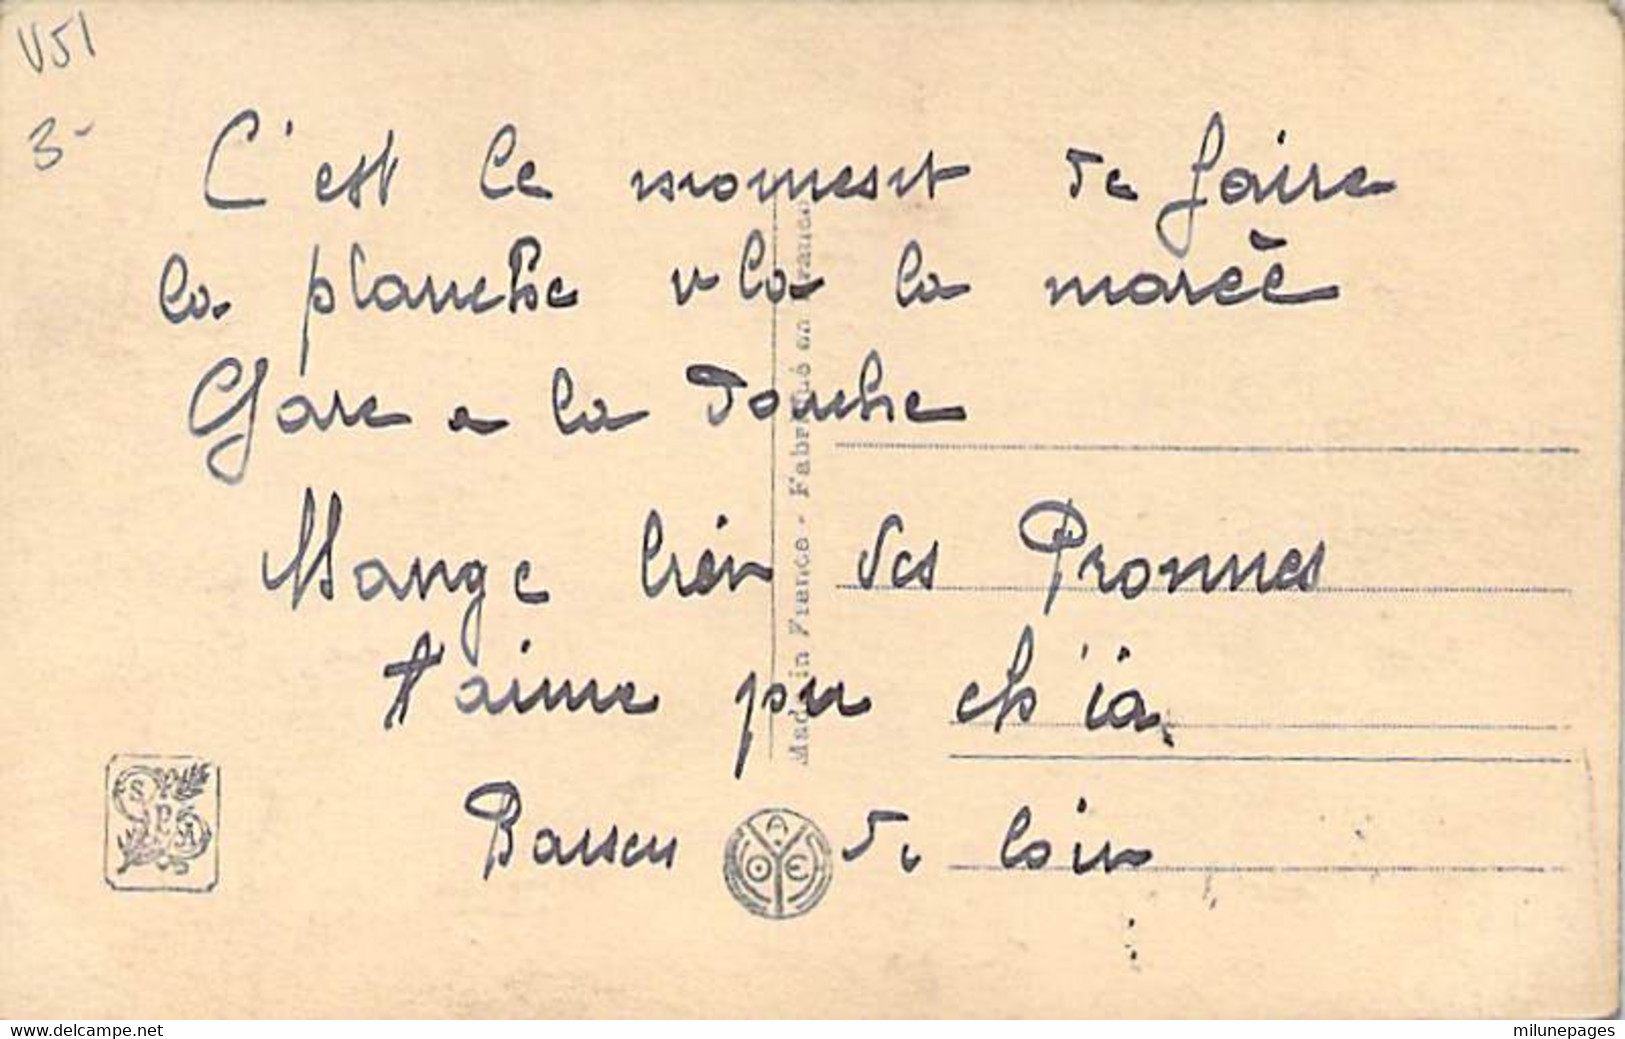 V51
3-
C'est le moment de faire
la planche v la la marée
Gare a la douche
Mange bien des Pronnes
t'aime pu ch'ia
de loin
Made in France - Fabriqué en France
S P A
A O E
www.delcampe.net
milunepages